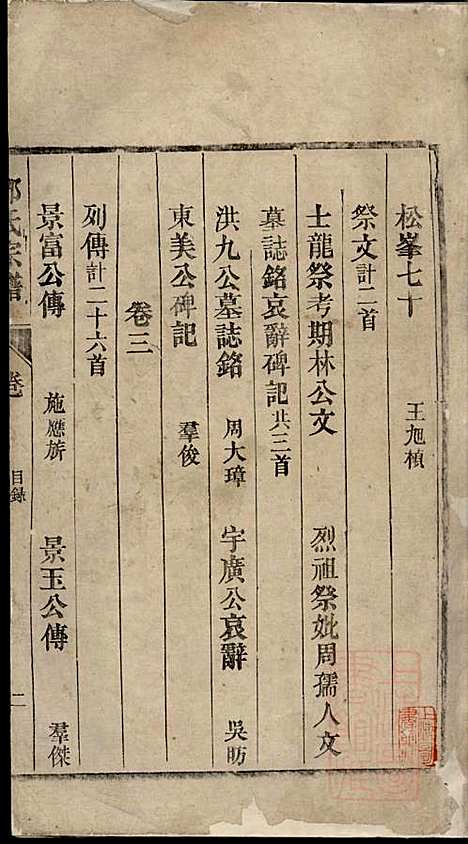 松峯七十　王旭楨
祭文計二首
士龍祭考期林公文　烈祖祭妣周孺人文
墓誌銘哀辭碑記共三首
洪九公墓誌銘　周大璋　宇廣公哀辭　吳昉
東美公碑記　羣俊
卷三
列傳計二十六首
景富公傳　施應旂　景玉公傳　羣傑
氏宗譜　卷　目録　二